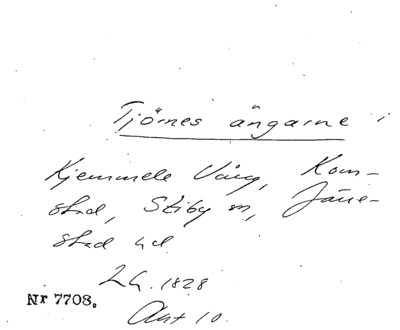 Tjörnes ängarne i
Kjemmele Vång, Kom-
stad, Stiby sn, Järre-
stad hd
LH. 1828
Nr 7708.
Akt 10.